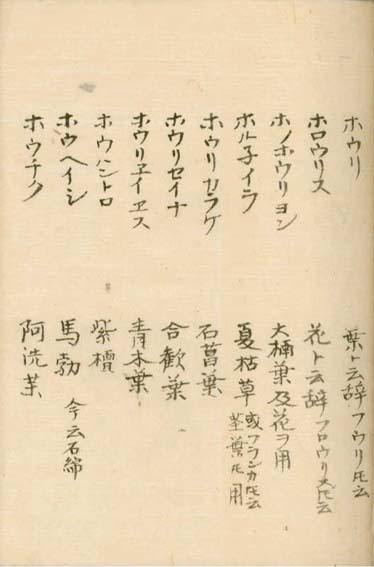 ホウリ 葉ト云辞フウリ𪜈云
ホロウリス 花ト云辞フロウリス𪜈云
ホノホウリヨン 大楠葉及花ヲ用
ホル子イラ 夏枯草 或フラジカ𪜈云 茎葉𪜈用
ホウリカラケ 石菖葉
ホウリセイナ 合歓葉
ホウリヱイヱス 青木葉
ホウハントロ 紫檀
ホウヘイシ 馬勃 今云石綿
ホウチク 阿洗